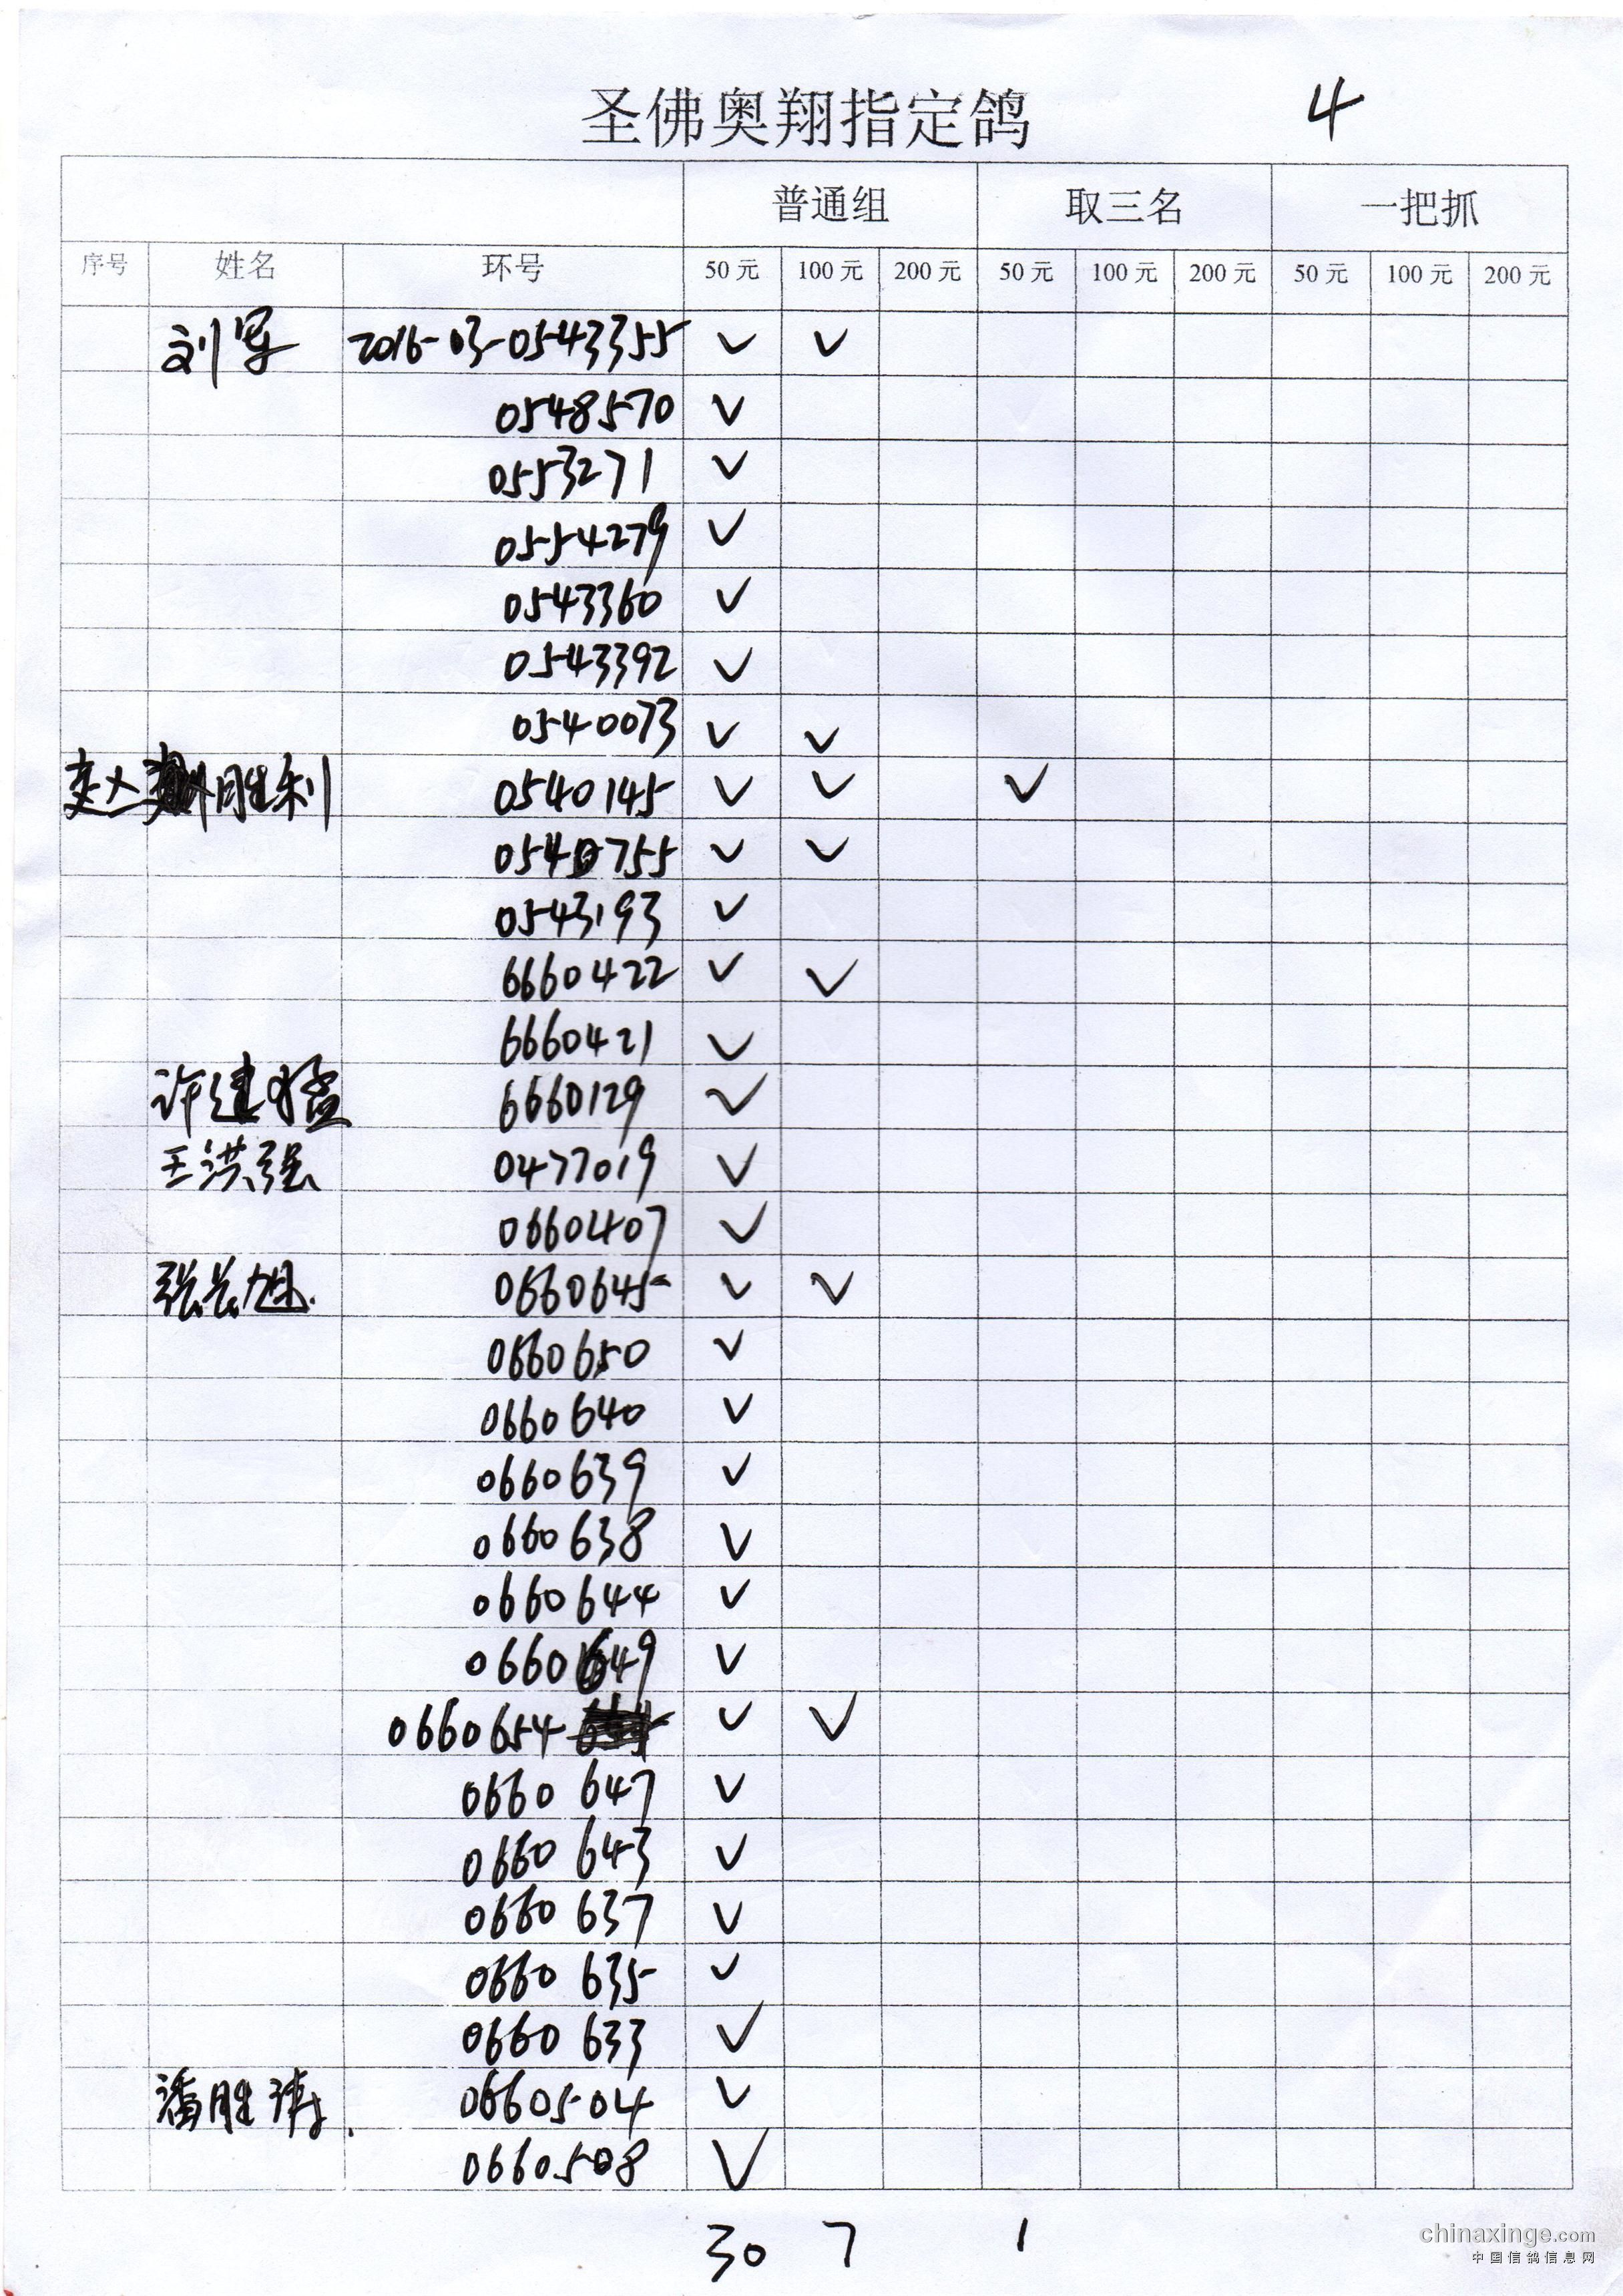 圣佛奥翔指定鸽 4
普通组 取三名 一把抓
序号 姓名 环号 50元 100元 200元 50元 100元 200元 50元 100元 200元
刘军 2016-03-0543355 ✓ ✓
0548570 ✓
0553271 ✓
0554279 ✓
0543360 ✓
0543392 ✓
0540073 ✓ ✓
赵胜利 0540145 ✓ ✓ ✓
0540755 ✓ ✓
0543193 ✓
6660422 ✓ ✓
6660421 ✓
许建猛 6660129 ✓
王洪强 0477019 ✓
0660407 ✓
张长旭 0660645 ✓ ✓
0660650 ✓
0660640 ✓
0660639 ✓
0660638 ✓
0660644 ✓
0660649 ✓
0660654 ✓ ✓
0660647 ✓
0660643 ✓
0660637 ✓
0660635 ✓
0660633 ✓
潘胜涛 0660504 ✓
0660508 ✓
30 7 1
chinaxinge.com
中国信鸽信息网